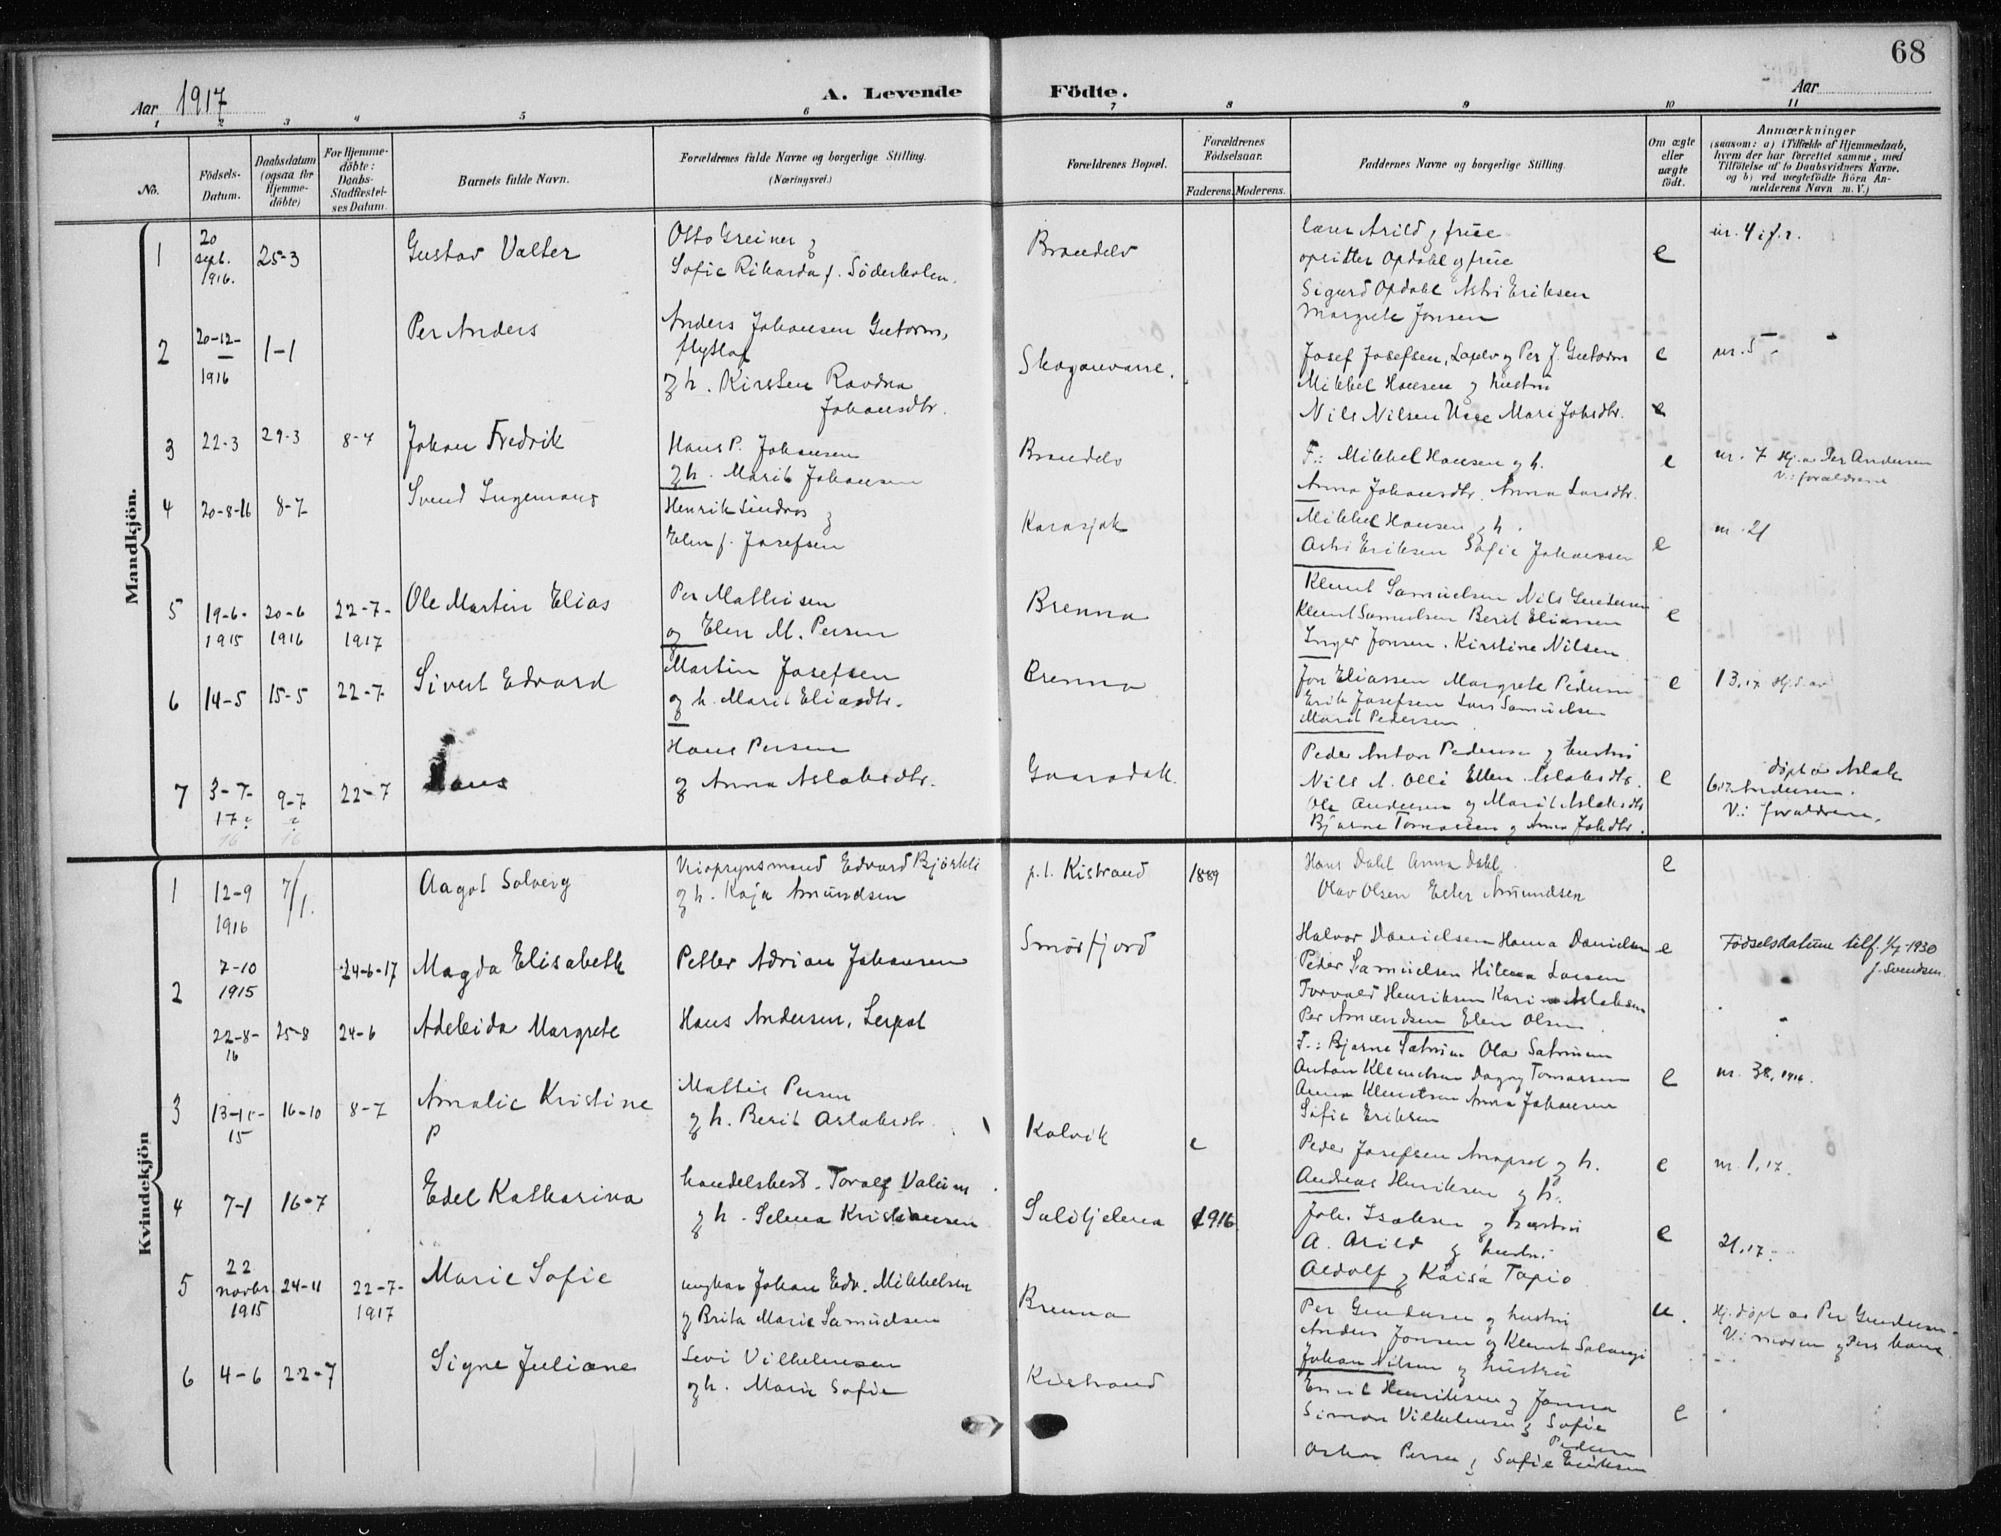 68
Aar 1917
A. Levende Födte.
Aar
1 2 3 4 5 6 7 8 9 10 11
No.
Födsels-
Datum.
Daabsdatum
(ogsaa for
Hjemme-
döbte)
For Hjemme-
döbte:
Daabs-
Stadfæstel-
ses Datum.
Barnets fulde Navn.
Forældrenes fulde Navne og borgerlige Stilling.
(Næringsvei.)
Forældrenes Bopæl.
Forældrenes
Födselsaar.
Faderens. Moderens.
Faddernes Navne og borgerlige Stilling.
Om ægte
eller
uægte
födt.
Anmærkninger
(saasom: a) i Tilfælde af Hjemmedaab,
hvem der har forrettet samme, med
Tilföielse af to Daabsvidners Navne.
og b) ved uægtefödte Börn An-
melderens Navn m. V.)
Mandkjön.
1 20 sept. 1916. 25-3 Gustav Valter
Otto Greiner og
Sofie Rikarda f. Söderholm.
Brændelv
lærer Arild og frue
opsitter Opdahl og frue
Sigurd Opdahl Astri Eriksen
Margrete Jonsen
e
nr. 4 i f. r.
2 20-12-1916 1-1 Per Anders
Anders Johansen Guttorm,
flytlap
og h. Kirsten Ravdna
Johansdtr.
Skoganvarre.
Josef Josefsen, Laxelv og Per J. Guttorm
Mikkel Hansen og hustru
Nils Nilsen Mari Johsdtr.
e
nr. 5
3 22-3 29-3 8-7 Johan Fredrik
Hans P. Johansen
og h. Marit Johansen
Brændelv
F.: Mikkel Hansen og h.
Anna Johansdtr. Anna Larsdtr.
e
nr. 7 Hj. av Per Andersen
V.: forældrene
4 20-8-16 8-7 Svend Ingemans
Henrik Lindros og
Elen f. Josefsen
Karasjok
Mikkel Hansen og h.
Astri Eriksen Sofie Johansen
e
nr. 21
5 19-6-1915 20-6 1916 22-7-1917 Ole Martin Elias
Per Mathisen
og Elen M. Persen
Brenna
Klemt Samuelsen Nils Gundersen
Klemt Samuelsen Berit Eliassen
Inger Jonsen. Kirstine Nilsen
e
6 14-5 15-5 22-7 Sivert Edvard
Martin Josefsen
og h. Marit Eliasdtr.
Brenna
Jon Eliassen Margrete Pedersen
Erik Josefsen Lars Samuelsen
Marit Pedersen
e
13.17 Hj. d. av
7 3-7-17 9-7 22-7 Hans
Hans Persen
og Anna Aslaksdtr.
Peder Anton Pedersen og hustru
Nils A. Olli Ellen Aslaksdtr.
Ole Andersen og Marit Aslaksdtr
Bjarne Tomassen og Anna Johsdtr.
e
döpt av Aslak
Andersen.
V.: forældrene.
Kvindekjön
1 12-9 1916 7/1. Aagot Solveig
Edvard Björkli
og h. Kaja Amundsen
p.t. Kistrand
1889
Hans Dahl Anna Dahl
Olav Olsen Ester Amundsen
e
2 7-10 1915 24-6-17 Magda Elisabeth
Petter Adrian Johansen
Smörfjord
Halvor Danielsen Hanna Danielsen
Peder Samuelsen Hilma Larsen
Torvald Henriksen Karin Aslaksen
Per Amundsen Elen Olsen
e
Födselsdatum tilf. 1/7-1930
J. Svendsen.
22-8-16 25-8 24-6 Adeleida Margrete
Hans Andersen, Leipol
F.: Bjarne Olav
Anton Klemetsen Dagny Tomassen
Anna Klemetsen Anna Johansen
Sofie Eriksen
e
nr. 38, 1916.
3 13-10-15 16-10 8-7 Amalie Kristine
P
Mattis Persen
og h. Berit Aslaksdtr.
Kolvik
e
Peder Josefsen og h.
Andreas Henriksen og h.
e
nr. 1, 17.
4 7-1 16-7 Edel Katharina
handelsbest. Toralf Valum
og h. Selma Kristiansen
1916
Joh. Isaksen og hustru
A. Arild og hustru
Aldolf og Kaisa Tapio
e
21.17.
5 22 novbr 1915 24-11 22-7-1917 Marie Sofie
ungkar Johan Edv. Mikkelsen
og Brita Marie Samuelsen
Brenna
Per Gundersen og hustru
Anders Jonsen og Klemt
Johan Nilsen og hustru
u.
Hj. döpt av Per Gundersen
V.: moren og Pers kone
6 4-6 22-7 Signe Juliane
Levi Vilhelmsen
og h. Marie Sofie
Kistrand
Emil Henriksen og Janna
Simon Vilhelmsen og Sofie
Pedersen
Oskar Persen og Sofie Eriksen
e